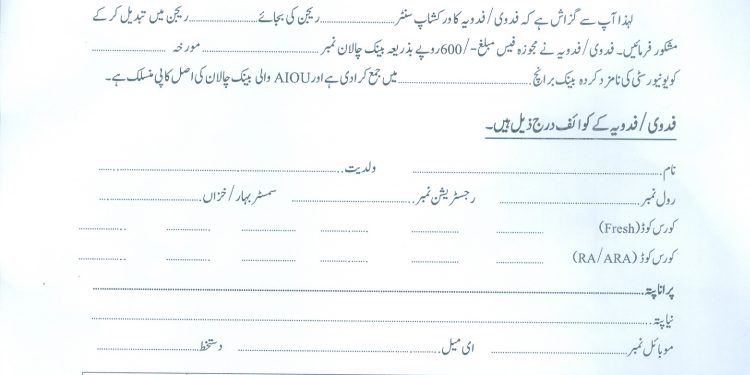 لہٰذا آپ سے گزاش ہے کہ فدوی/فدویہ کا ورکشاپ سنٹر ............ ریجن کی بجائے ............ ریجن میں تبدیل کر کے
مشکور فرمائیں۔ فدوی/فدویہ نے مجوزہ فیس مبلغ-/600 روپے بذریعہ بینک چالان نمبر ............ مورخہ ............
کو یونیورسٹی کی نامزد کردہ بینک برانچ ............ میں جمع کرادی ہے اور AIOU والی بینک چالان کی اصل کاپی منسلک ہے۔
فدوی/فدویہ کے کوائف درج ذیل ہیں۔
نام ............ ولدیت ............
رول نمبر ............ رجسٹریشن نمبر ............ سمسٹر بہار/خزاں ............
کورس کوڈ (Fresh) ............ ............ ............ ............ ............ ............
کورس کوڈ (RA/ARA) ............ ............ ............ ............ ............ ............
پرانا پتہ ............
نیا پتہ ............
موبائل نمبر ............ ای میل ............ دستخط ............